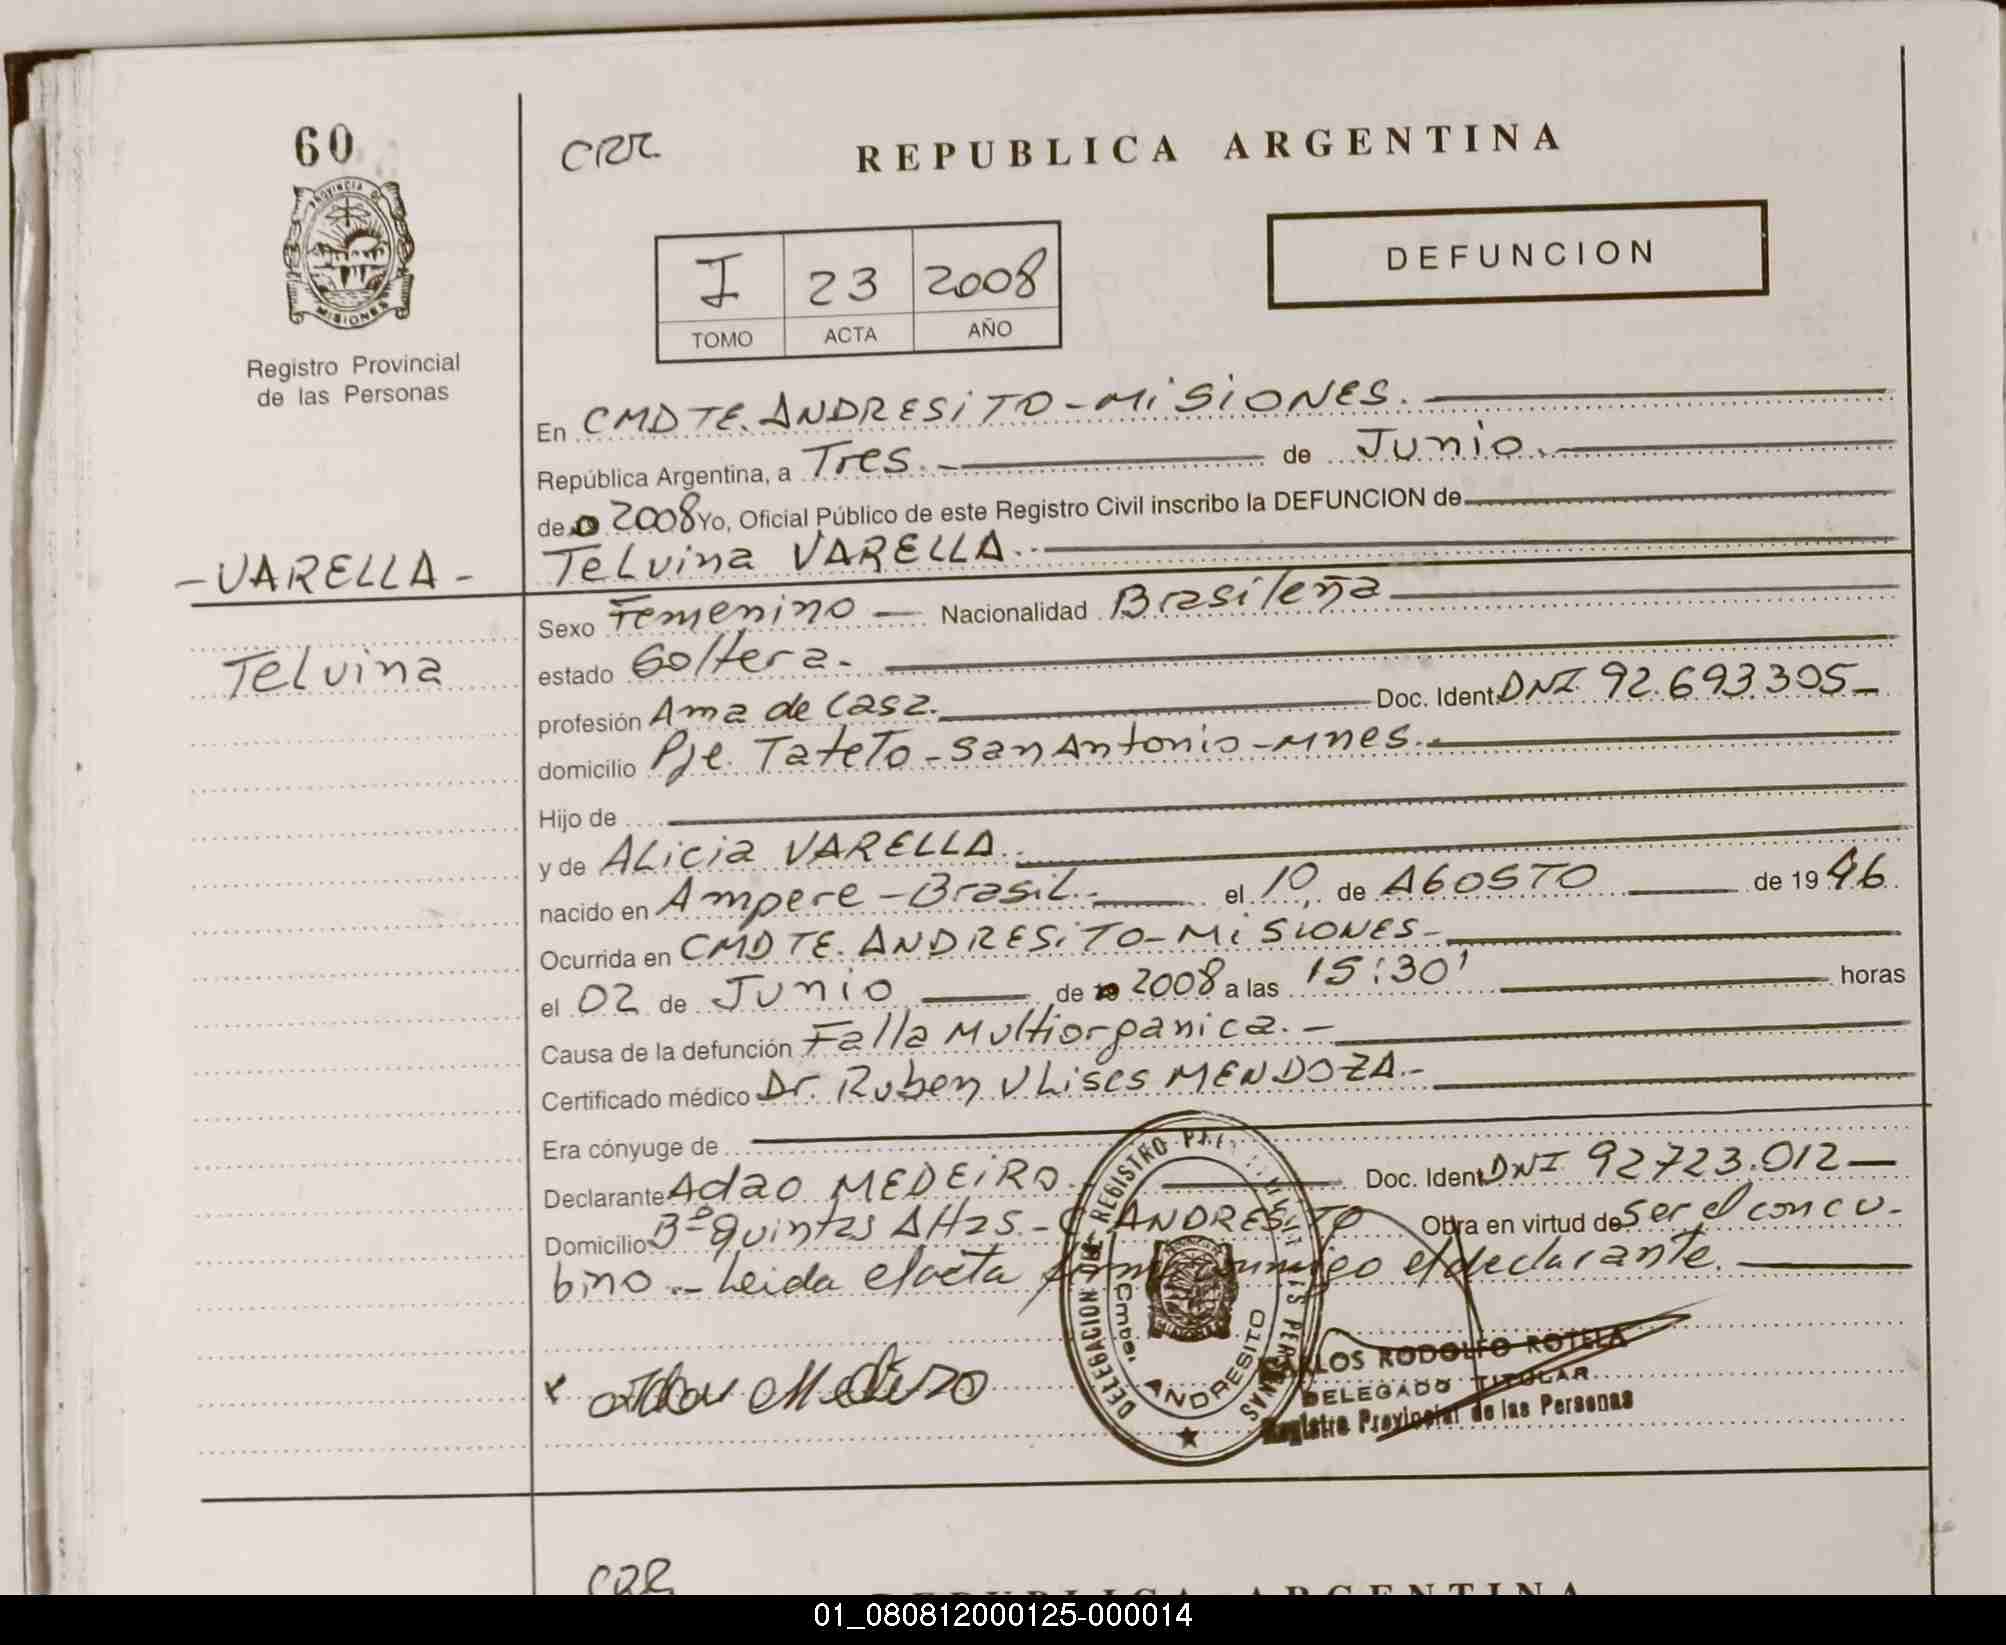 60
PROVINCIA DE
MISIONES
Registro Provincial
de las Personas
CRR
REPUBLICA ARGENTINA
I 23 2008
TOMO ACTA AÑO
DEFUNCION
En CMDTE. ANDRESiTO - MiSiONES.
República Argentina, a Tres.- de Junio.-
de 2008 Yo, Oficial Público de este Registro Civil inscribo la DEFUNCION de
- VARELLA - Telvina VARELLA.-
Telvina
Sexo Femenino - Nacionalidad Brasileña
estado Soltera.-
profesión Ama de Casa. Doc. Ident. DNI 92.693.305-
domicilio Pje. Tateto - San Antonio - Mnes.-
Hijo de
y de Alicia VARELLA.
nacido en Ampere - Brasil.- el 10, de AGOSTO de 1946.
Ocurrida en CMDTE. ANDRESiTO - MiSiONES-
el 02 de Junio de 2008 a las 15:30' horas
Causa de la defunción Falla Multiorganica.-
Certificado médico Dr. Ruben Ulises MENDOZA.-
Era cónyuge de
Declarante Adao MEDEiRO. Doc. Ident. DNI 92723.012-
Domicilio Bº Quintas Altas - C. ANDRESiTO Obra en virtud de ser el concu-
bino.- Leida el acta firma conmigo el declarante.
x Adao Medeiro
DELEGACION DEL REGISTRO PERSONAS
Cmdte. ANDRESITO
CARLOS RODOLFO ROTELA
DELEGADO TITULAR
Registro Provincial de las Personas
CRR
REPUBLICA ARGENTINA
01_080812000125-000014